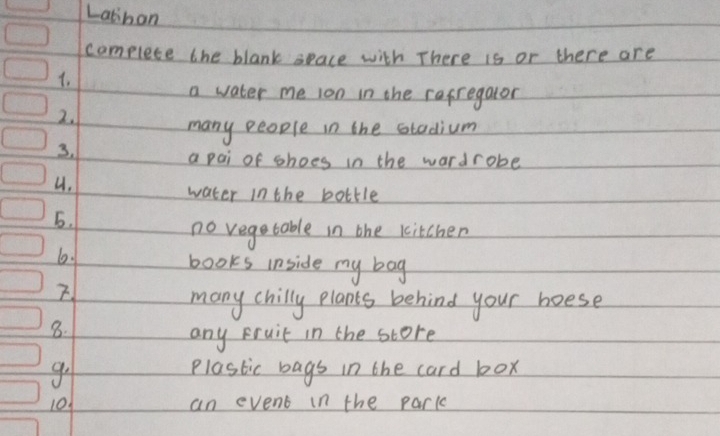 Latihan
complete the blank space with There is or there are
1. a water me lon in the refregator
2. many people in the stadium
3. a pai of shoes in the wardrobe
4. water in the bottle
5. no vegetable in the kitchen
6. books inside my bag
7. many chilly plants behind your hoese
8. any fruit in the store
9. Plastic bags in the card box
10. an event in the park